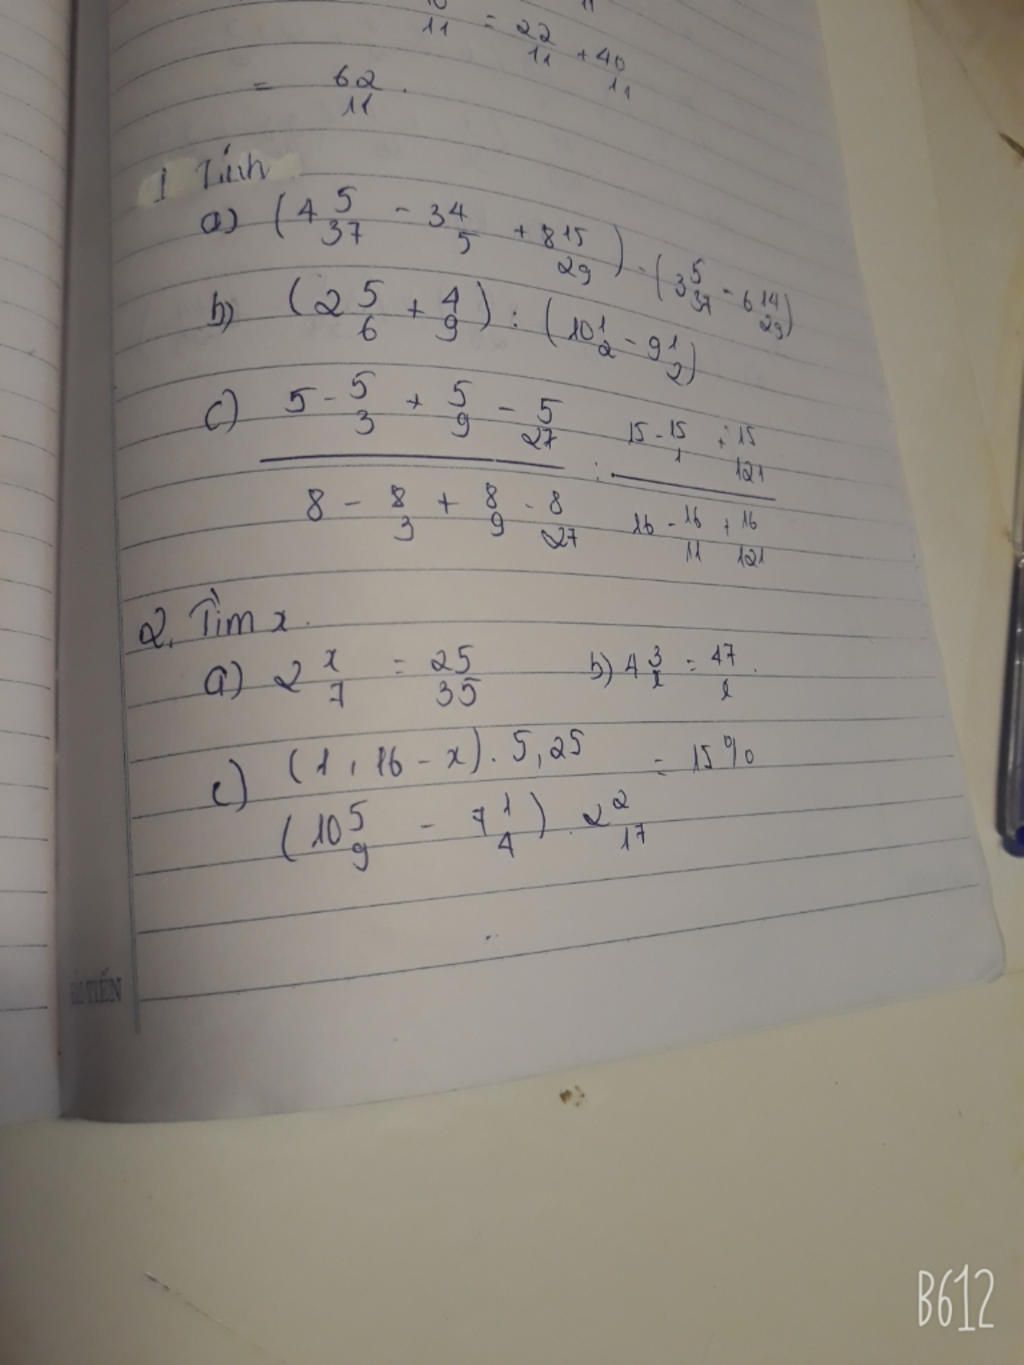 11 = 22/11 + 40/11
= 62/11.
1 Tính
a) (4 5/37 - 3 4/5 + 8 15/29) - (3 5/37 - 6 14/29)
b) (2 5/6 + 4/9) : (10 1/2 - 9 1/2)
c) (5 - 5/3 + 5/9 - 5/27)/(8 - 8/3 + 8/9 - 8/27) : (15 - 15/1 + 15/121)/(16 - 16/11 + 16/121)
2. Tìm x.
a) 2 x/7 = 25/35 b) 4 3/x = 47/x.
c) (1,16 - x) . 5,25 = 15%
(10 5/9 - 7 1/4) . 2 2/17
TIẾN
B612